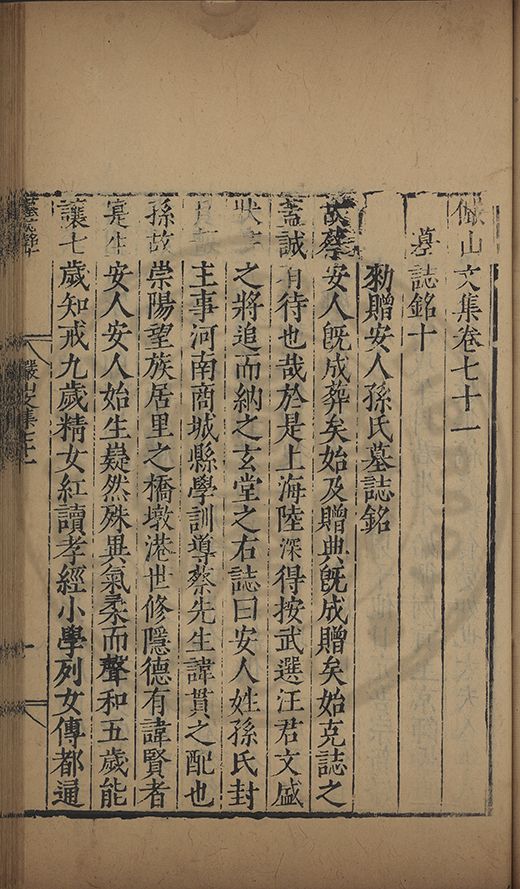 儼山文集卷七十一
墓誌銘十
勑贈安人孫氏墓誌銘
故蔡安人旣成葬矣始及贈典旣成贈矣始克誌之
蓋誠有待也哉於是上海陸深得按武選汪君文盛
狀之將追而納之玄堂之右誌曰安人姓孫氏封
主事河南商城縣學訓導蔡先生諱貫之配也
孫故崇陽望族居里之橋墩港世修隱德有諱賢者
寔生安人安人始生嶷然殊異氣柔而聲和五歲能
讓七歲知戒九歲精女紅讀孝經小學列女傳都通
儼山文集七十一